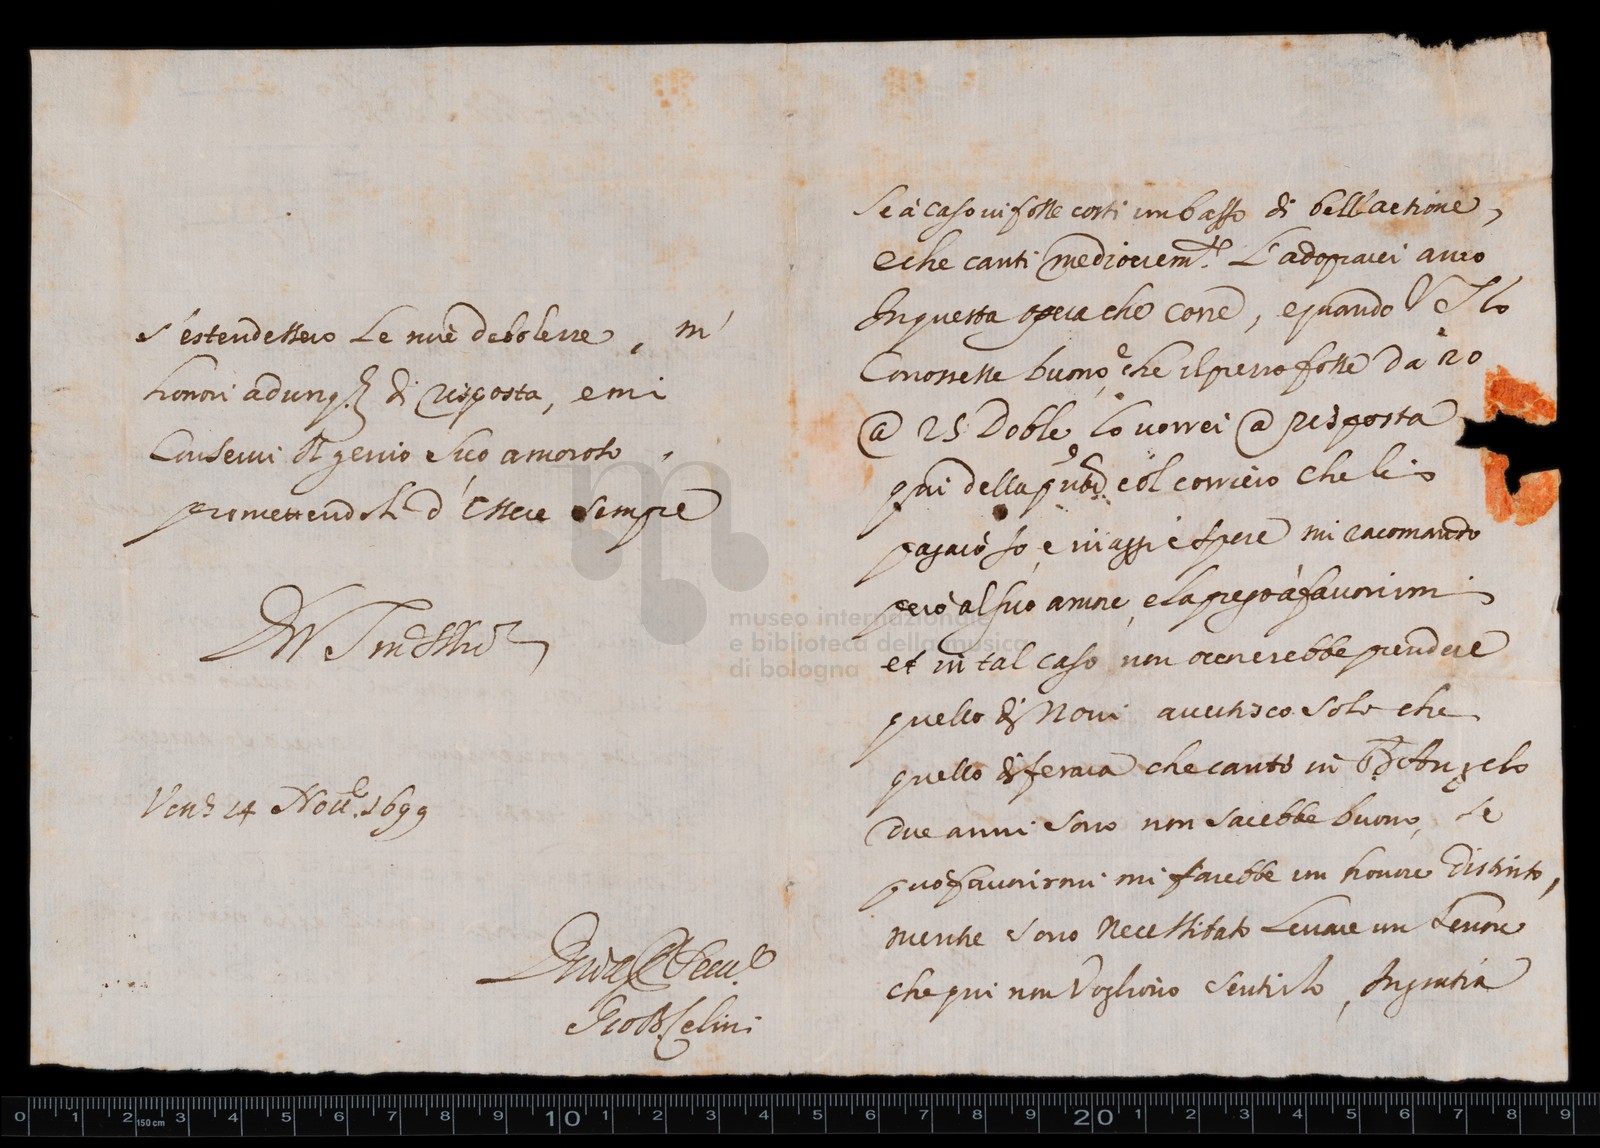 s'estendessero le mie debolezze, m'
honori adunq. di risposta, e mi
Conservi Il genio suo amoroso,
promettendoli d'essere sempre
Di V S Ill
Ven. 24 Nov. 1699
Gio B. Celini
Se à caso vi fosse costì un basso di bell'actione,
e che canti mediocrem.te L'adoprarei anco
In questa opera che corre, e quando V S Lo
Conoscesse buono, e che il prezzo fosse da 20
@ 25 Doble, Lo vorrei @ risposta
qui della col corriero che li
pagarò e spese mi racomando
però al suo amore, e la prego à favorirmi
et in tal caso non occorerebbe prendere
quello di Novi avertisco solo che
quello di Ferara che cantò in St Angelo
due anni sono non sarebbe buono, se
può favorirmi mi farebbe un honore distinto,
mentre sono necessitato Levare un Tenore
che qui non vogliono sentirlo, In gratia
museo internazionale
e biblioteca della musica
di bologna
0 1 2 3 4 5 6 7 8 9 10 1 2 3 4 5 6 7 8 9 20 1 2 3 4 5 6 7 8 9
150 cm